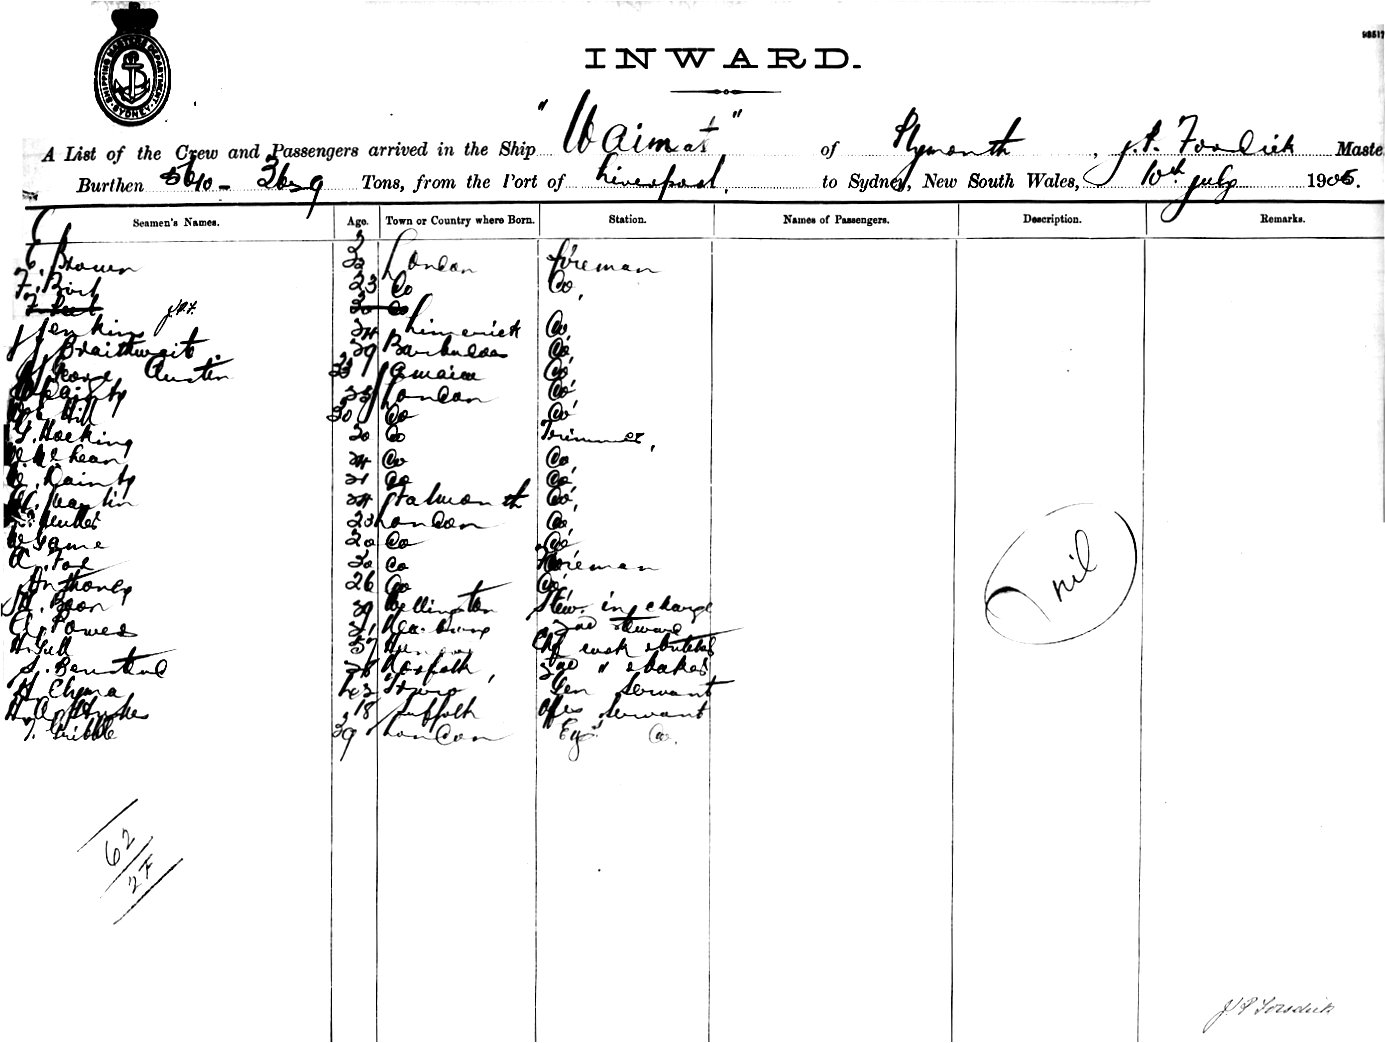 SHIPPING MASTER'S DEPARTMENT SYDNEY
INWARD.
A List of the Crew and Passengers arrived in the Ship "Waimate" of Plymouth, J. P. Forsdick Maste
Burthen 5610 - 3629 Tons, from the Port of Liverpool, to Sydney, New South Wales, 10th July 1905.
Seamen's Names. Age. Town or Country where Born. Station. Names of Passengers. Description. Remarks.
E. Brown 32 London Fireman
F. Bird 23 Do Do,
J.P.F. 30 Do
J Jenkins 24 Limerick Do
J Braithwaite 29 Barbados Do
George Austin 33 Jamaica Do
Dainty 25 London Do
Hill 30 Do Do
G. Hocking 20 Do Trimmer,
24 Do Do
Dainty 21 Do Do
Martin 24 Falmouth Do
23 London Do
Game 20 Do Do
A. Fox 30 Do Fireman
Anthony 26 Do Do
Boon 39 Wellington Stew. in charge
A. Power 21 2nd Steward
H. Gill 37 Chf cook & butcher
S. 28 Norfolk, 2nd " & baker
H. Chyma 43 Truro Gen Servant
H. A. 18 Suffolk Offrs Servant
T. Gribble 39 London Eng" Do.
nil
62
27
J. P. Forsdick